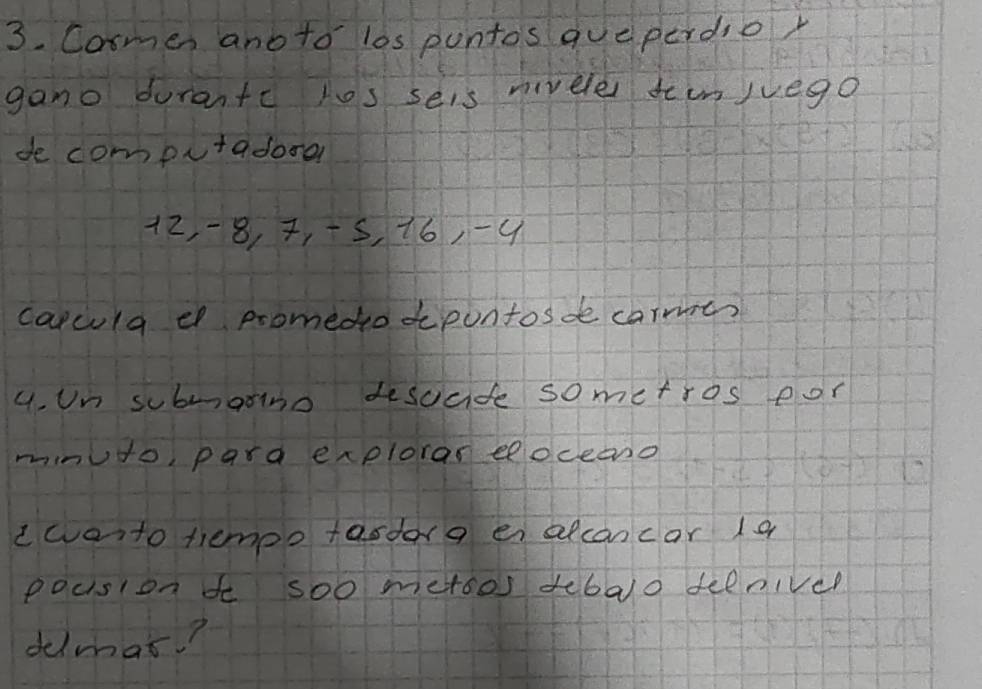 3. Carmen anoto los puntos que perdio y
gano durante los seis niveles de un juego
de computadora
12, -8, 7, -5, 16, -4
calcula el promedio de puntos de carmen
4. Un submarino desciede 50 metros por
minuto, para explorar el oceano
¿cuanto tiempo tardara en alcancar la
pocision de 500 metros debajo del nivel
del mar?